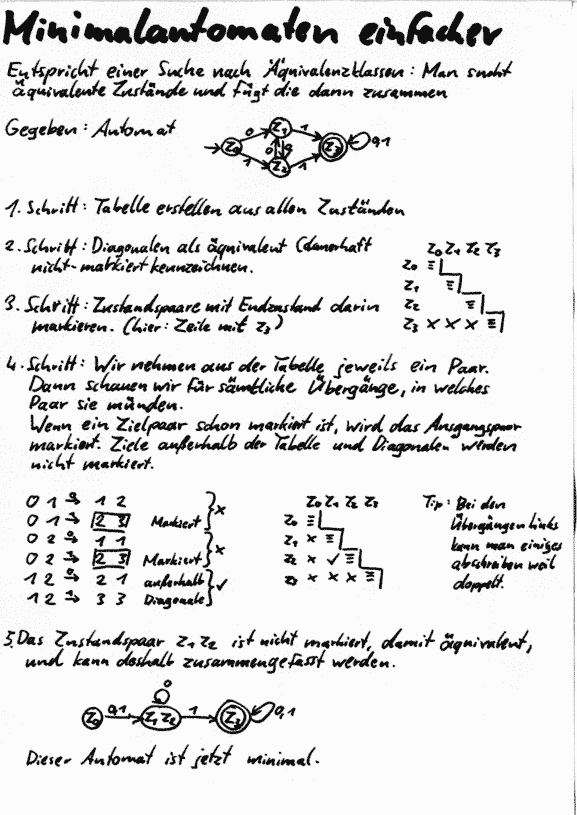 Minimalautomaten einfacher
Entspricht einer Suche nach Äquivalenzklassen: Man sucht
äquivalente Zustände und fügt die dann zusammen
Gegeben: Automat
z₀ 0 z₁ 1 z₃ 0,1
1 z₂ 0 0 1
1. Schritt: Tabelle erstellen aus allen Zuständen
2. Schritt: Diagonalen als äquivalent (dauerhaft
nicht-markiert kennzeichnen.
z₀ z₁ z₂ z₃
z₀ ≡
z₁ ≡
z₂ ≡
z₃ x x x ≡
3. Schritt: Zustandspaare mit Endzustand darin
markieren. (hier: Zeile mit z₃)
4. Schritt: Wir nehmen aus der Tabelle jeweils ein Paar.
Dann schauen wir für sämtliche Übergänge, in welches
Paar sie münden.
Wenn ein Zielpaar schon markiert ist, wird das Ausgangspaar
markiert. Ziele außerhalb der Tabelle und Diagonalen werden
nicht markiert.
0 1 0→ 1 2
0 1 1→ 2 3 Markiert x
0 2 0→ 1 1
0 2 1→ 2 3 Markiert x
1 2 0→ 2 1 außerhalb
1 2 1→ 3 3 Diagonale ✓
z₀ z₁ z₂ z₃
z₀ ≡
z₁ x ≡
z₂ x ✓ ≡
z₃ x x x ≡
Tip: Bei den
Übergängen links
kann man einiges
abschreiben weil
doppelt.
5. Das Zustandspaar z₁ z₂ ist nicht markiert, damit äquivalent,
und kann deshalb zusammengefasst werden.
0
z₀ 0,1 z₁ z₂ 1 z₃ 0,1
Dieser Automat ist jetzt minimal.